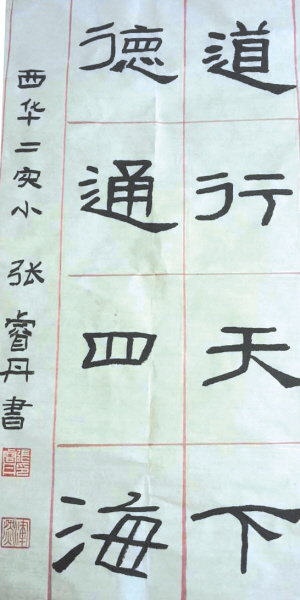 道行天下
德通四海
西华二实小 张睿丹書